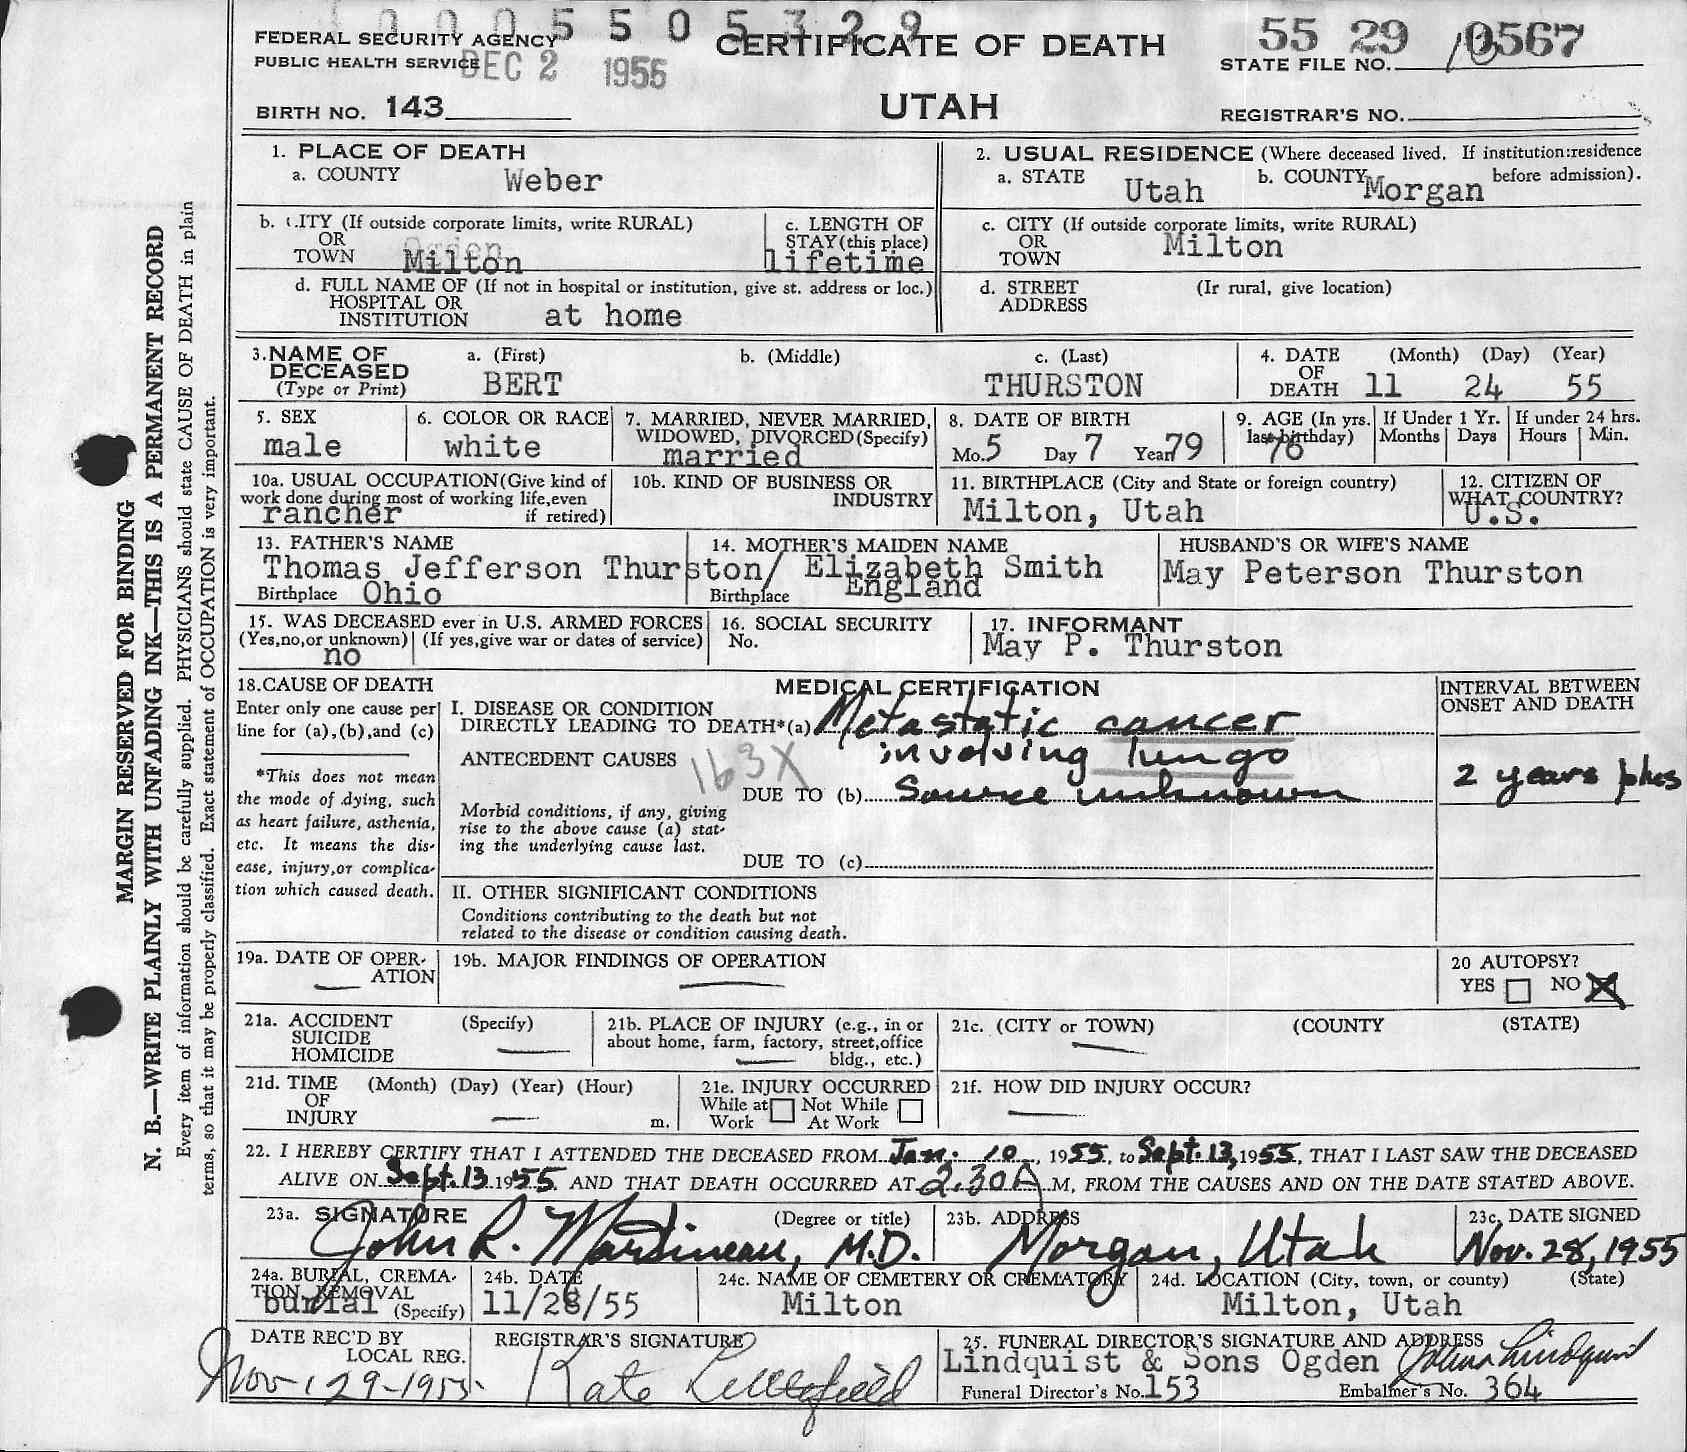 0 0 0 5 5 0 5 3 2 9
FEDERAL SECURITY AGENCY
PUBLIC HEALTH SERVICE
DEC 2 1955
CERTIFICATE OF DEATH
55 29 10567
STATE FILE NO.
BIRTH NO. 143
UTAH
REGISTRAR'S NO.
MARGIN RESERVED FOR BINDING
N. B.—WRITE PLAINLY WITH UNFADING INK—THIS IS A PERMANENT RECORD
Every item of information should be carefully supplied. PHYSICIANS should state CAUSE OF DEATH in plain
terms, so that it may be properly classified. Exact statement of OCCUPATION is very important.
1. PLACE OF DEATH
a. COUNTY Weber
2. USUAL RESIDENCE (Where deceased lived. If institution:residence
before admission).
a. STATE Utah b. COUNTY Morgan
b. CITY (If outside corporate limits, write RURAL)
OR
TOWN Ogden Milton
c. LENGTH OF
STAY (this place)
lifetime
c. CITY (If outside corporate limits, write RURAL)
OR
TOWN Milton
d. FULL NAME OF (If not in hospital or institution, give st. address or loc.)
HOSPITAL OR
INSTITUTION at home
d. STREET (Ir rural, give location)
ADDRESS
3. NAME OF
DECEASED
(Type or Print)
a. (First) b. (Middle) c. (Last)
BERT THURSTON
4. DATE (Month) (Day) (Year)
OF
DEATH 11 24 55
5. SEX
male
6. COLOR OR RACE
white
7. MARRIED, NEVER MARRIED,
WIDOWED, DIVORCED (Specify)
married
8. DATE OF BIRTH
Mo. 5 Day 7 Year 79
9. AGE (In yrs.
last birthday)
76
If Under 1 Yr.
Months Days
If under 24 hrs.
Hours Min.
10a. USUAL OCCUPATION (Give kind of
work done during most of working life, even
rancher if retired)
10b. KIND OF BUSINESS OR
INDUSTRY
11. BIRTHPLACE (City and State or foreign country)
Milton, Utah
12. CITIZEN OF
WHAT COUNTRY?
U.S.
13. FATHER'S NAME
Thomas Jefferson Thurston/
Birthplace Ohio
14. MOTHER'S MAIDEN NAME
Elizabeth Smith
Birthplace England
HUSBAND'S OR WIFE'S NAME
May Peterson Thurston
15. WAS DECEASED ever in U.S. ARMED FORCES
(Yes,no,or unknown) (If yes,give war or dates of service)
no
16. SOCIAL SECURITY
No.
17. INFORMANT
May P. Thurston
18. CAUSE OF DEATH
Enter only one cause per
line for (a),(b),and (c)
*This does not mean
the mode of dying, such
as heart failure, asthenia,
etc. It means the dis-
ease, injury,or complica-
tion which caused death.
MEDICAL CERTIFICATION
INTERVAL BETWEEN
ONSET AND DEATH
I. DISEASE OR CONDITION
DIRECTLY LEADING TO DEATH*(a) Metastatic cancer
involving lungs
ANTECEDENT CAUSES 163X
DUE TO (b) Source unknown
2 years plus
Morbid conditions, if any, giving
rise to the above cause (a) stat-
ing the underlying cause last.
DUE TO (c)
II. OTHER SIGNIFICANT CONDITIONS
Conditions contributing to the death but not
related to the disease or condition causing death.
19a. DATE OF OPER-
ATION
19b. MAJOR FINDINGS OF OPERATION
20 AUTOPSY?
YES NO X
21a. ACCIDENT (Specify)
SUICIDE
HOMICIDE
21b. PLACE OF INJURY (e.g., in or
about home, farm, factory, street,office
bldg., etc.)
21c. (CITY or TOWN) (COUNTY (STATE)
21d. TIME (Month) (Day) (Year) (Hour)
OF
INJURY m.
21e. INJURY OCCURRED
While at Not While
Work At Work
21f. HOW DID INJURY OCCUR?
22. I HEREBY CERTIFY THAT I ATTENDED THE DECEASED FROM Jan. 10, 1955, to Sept. 13, 1955, THAT I LAST SAW THE DECEASED
ALIVE ON Sept. 13 1955 AND THAT DEATH OCCURRED AT 2.30A M, FROM THE CAUSES AND ON THE DATE STATED ABOVE.
23a. SIGNATURE (Degree or title)
John R. Martineau, M.D.
23b. ADDRESS
Morgan, Utah
23c. DATE SIGNED
Nov. 28, 1955
24a. BURIAL, CREMA-
TION, REMOVAL
burial (Specify)
24b. DATE
11/28/55
24c. NAME OF CEMETERY OR CREMATORY
Milton
24d. LOCATION (City, town, or county) (State)
Milton, Utah
DATE REC'D BY
LOCAL REG.
Nov. 29-1955.
REGISTRAR'S SIGNATURE
Kate
25. FUNERAL DIRECTOR'S SIGNATURE AND ADDRESS
Lindquist & Sons Ogden
Lindquist
Funeral Director's No. 153 Embalmer's No. 364